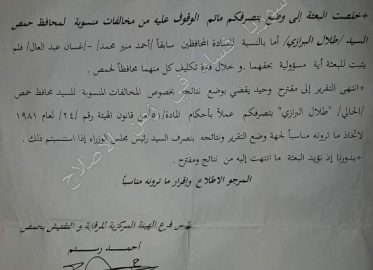 +خلصت البعثة إلى وضع بتصرفكم ماتم الوقوف عليه من مخالفات منسوبة لمحافظ حمص
السيد /طلال البرازي/ أما بالنسبة للسادة المحافظين سابقاً /أحمد منير محمد/ –/غسان عبد العال/ فلم
يثبت للبعثة أية مسؤولية بحقهما . و خلال فترة تكليف كل منهما محافظاً لحمص .
+انتهى التقرير إلى مقترح وحيد يقضي بوضع نتائجه بخصوص المخالفات المنسوبة للسيد محافظ حمص
/الحالي/ "طلال البرازي" بتصرفكم عملاً بأحكام المادة/٥١ من قانون الهيئة رقم /٢٤/ لعام ١٩٨١
لاتخاذ ما ترونه مناسباً لجهة وضع التقرير ونتائجه بتصرف السيد رئيس مجلس الوزراء إذا استنسبتم ذلك .
+بدورنا إذ نؤيد البعثة ما انتهت إليه من نتائج ومقترح .
المرجو الاطلاع وإقرار ما ترونه مناسباً
رئيس فرع الهيئة المركزية للرقابة و التفتيش بحمص
أحمد رستم